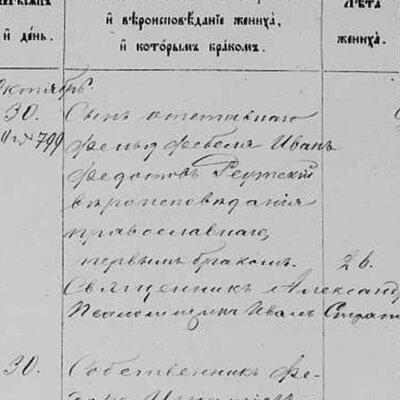 и вѣроисповѣданіе жениха,
и которымъ бракомъ.
и день.
Лѣта
жениха.
Октябрь.
30.
Сынъ отставнаго
799
фельдфебеля Иванъ
Федотовъ
вѣроисповѣданія
православнаго,
первымъ бракомъ.
26.
Священникъ Александ
Псаломщикъ Иванъ
30.
Собственникъ Фе-